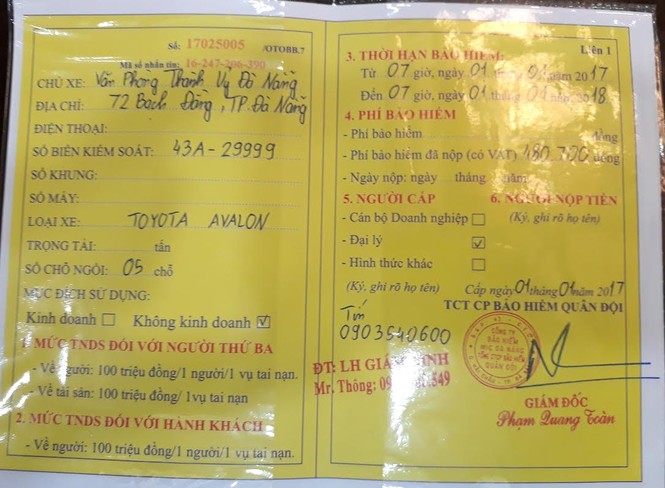 Số: 17025005 /OTOBB.7
Mã số nhắn tin: 16-247-206-390
CHỦ XE: Văn Phòng Thành Uỷ Đà Nẵng
ĐỊA CHỈ: 72 Bạch Đằng, TP. Đà Nẵng
ĐIỆN THOẠI:
SỐ BIỂN KIỂM SOÁT: 43A-29999
SỐ KHUNG:
SỐ MÁY:
LOẠI XE: TOYOTA AVALON
TRỌNG TẢI: tấn
SỐ CHỖ NGỒI: 05 chỗ
MỤC ĐÍCH SỬ DỤNG:
Kinh doanh ☐ Không kinh doanh ☑
1. MỨC TNDS ĐỐI VỚI NGƯỜI THỨ BA
- Về người: 100 triệu đồng/1 người/1 vụ tai nạn.
- Về tài sản: 100 triệu đồng/ 1vụ tai nạn
2. MỨC TNDS ĐỐI VỚI HÀNH KHÁCH
- Về người: 100 triệu đồng/1 người/1 vụ tai nạn.
Liên 1
3. THỜI HẠN BẢO HIỂM:
Từ 07 giờ, ngày 01 tháng 01 năm 2017
Đến 07 giờ, ngày 01 tháng 01 năm 2018
4. PHÍ BẢO HIỂM
- Phí bảo hiểm đồng
- Phí bảo hiểm đã nộp (có VAT) 480.700 đồng
- Ngày nộp: ngày tháng năm
5. NGƯỜI CẤP 6. NGƯỜI NỘP TIỀN
- Cán bộ Doanh nghiệp ☐ (Ký, ghi rõ họ tên)
- Đại lý ☑
- Hình thức khác ☐
(Ký, ghi rõ họ tên) Cấp ngày 01 tháng 01 năm 2017
TCT CP BẢO HIỂM QUÂN ĐỘI
0903540600
CÔNG TY
BẢO HIỂM
MIC ĐÀ NẴNG
TỔNG CTCP BẢO HIỂM
QUÂN ĐỘI
ĐT: LH GIÁM ĐỊNH
Mr. Thông: 549
GIÁM ĐỐC
Phạm Quang Toàn